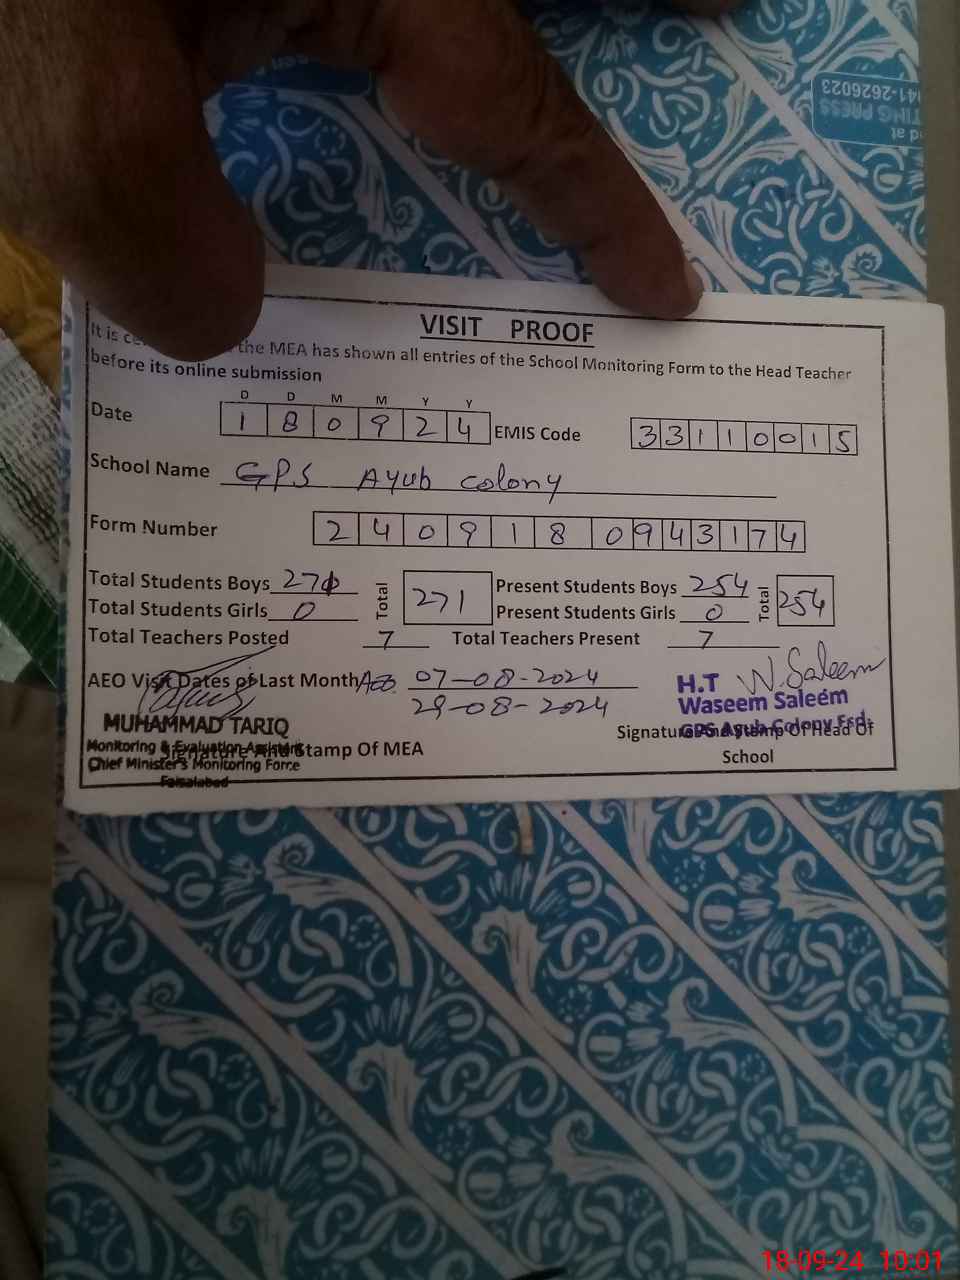 41-2626023
TING PRESS
d at
VISIT PROOF
It is the MEA has shown all entries of the School Monitoring Form to the Head Teacher
before its online submission
D D M M Y Y
Date 1 8 0 9 2 4 EMIS Code 3 3 1 1 0 0 1 5
School Name GPS Ayub Colony
Form Number 2 4 0 9 1 8 0 9 4 3 1 7 4
Total Students Boys 271 Total 271 Present Students Boys 254 Total 254
Total Students Girls 0 Present Students Girls 0
Total Teachers Posted 7 Total Teachers Present 7
AEO Visit Dates of Last Month AEO 07-08-2024
29-08-2024
H.T W.Saleem
Waseem Saleem
GPS Ayub Colony Fsd.
MUHAMMAD TARIQ
Monitoring & Evaluation Assistant
Chief Minister's Monitoring Force
Faisalabad
Signature And Stamp Of MEA
Signature And Stamp Of Head Of
School
18-09-24 10:01